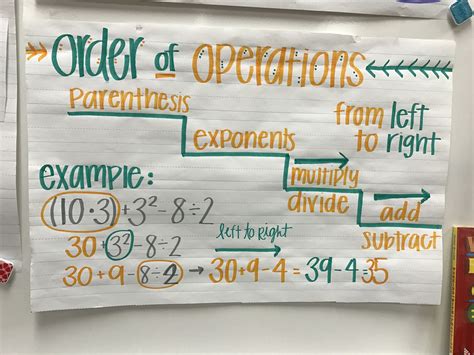 Order of Operations
Parenthesis
exponents
multiply
divide
add
subtract
from left
to right
example:
(10·3)+3²-8÷2
30+3²-8÷2
left to Right
30+9-8÷2 → 30+9-4=39-4=35